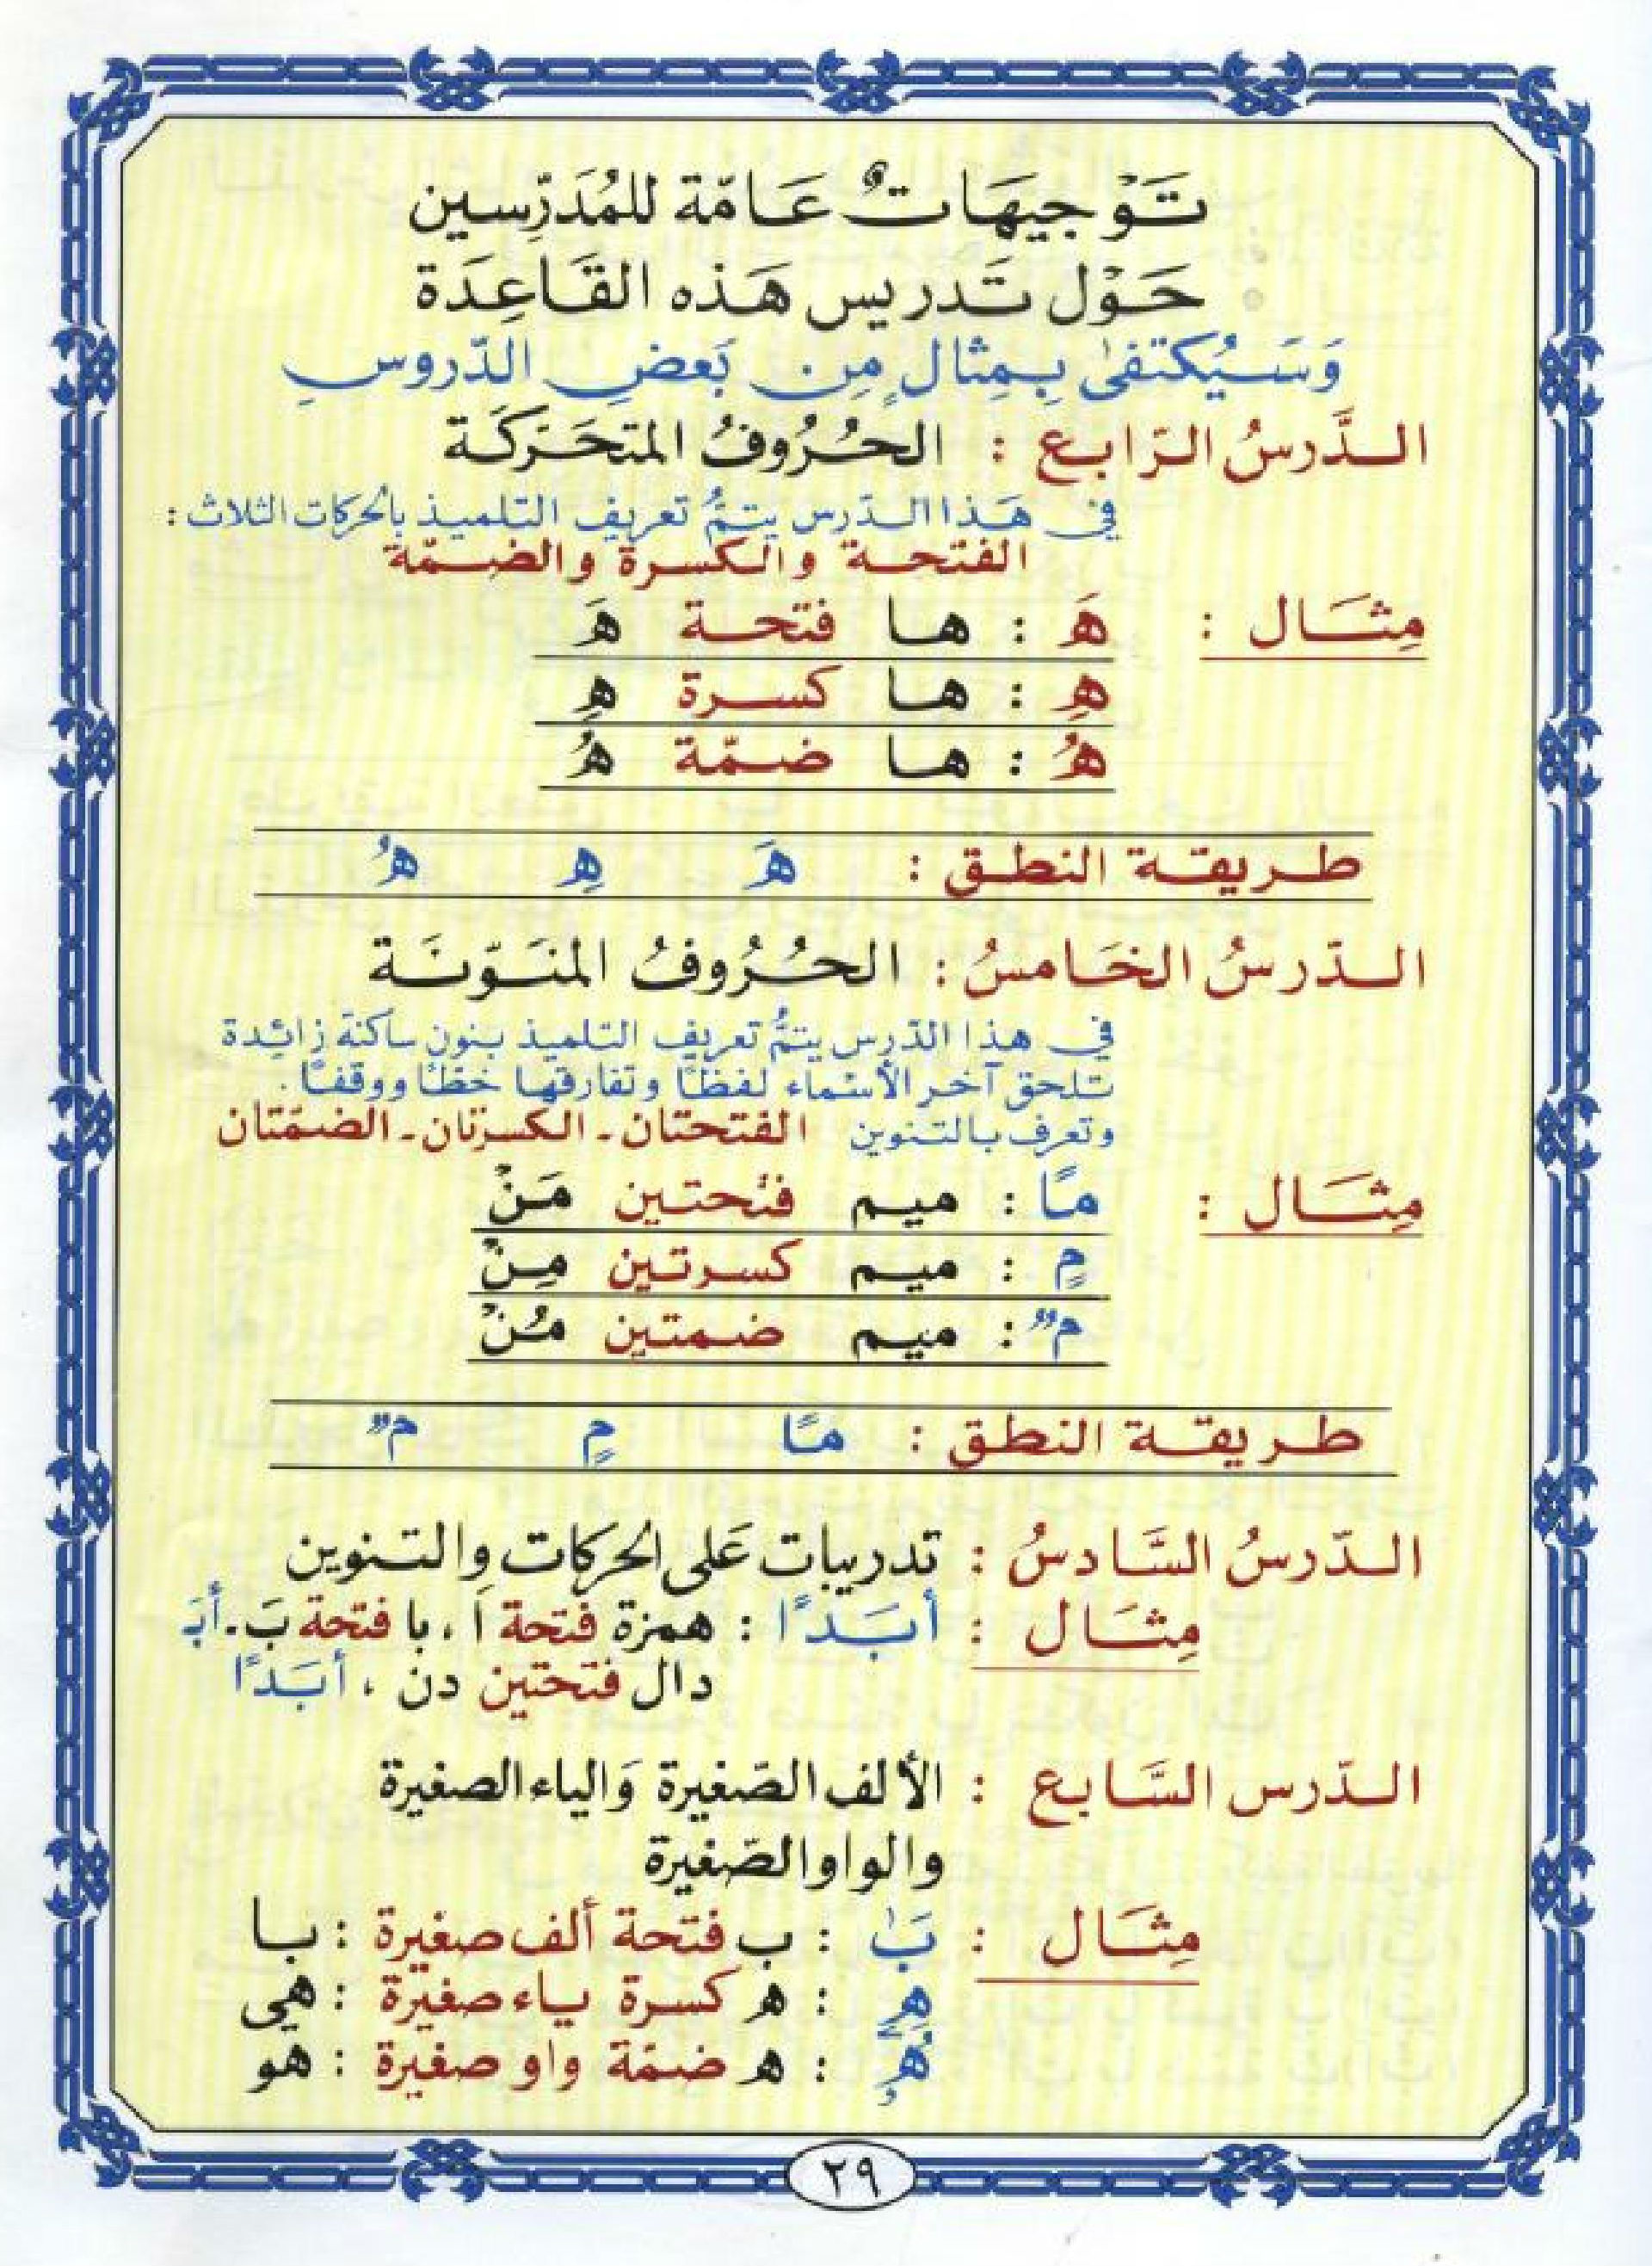 تَوْجِيهَاتٌ عَامّة للمُدَرِّسين
حَوْل تَدريس هَذه القَاعِدَة
وَسَيُكتفىٰ بِمِثالٍ مِن بَعضِ الدّروسِ
الدَّرسُ الرّابع : الحُرُوفُ المتحَرّكَة
في هَذا الدّرس يتمُّ تعريف التلميذ بالحركات الثلاث :
الفتحة والكسرة والضمّة
مِثَال : هَ : ها فتحة هَ
هِ : ها كسرة هِ
هُ : ها ضمّة هُ
طريقة النطق : هَ هِ هُ
الدّرسُ الخَامسُ : الحُرُوفُ المنَوّنَة
في هذا الدّرس يتمُّ تعريف التلميذ بنون ساكنة زائدة
تلحق آخر الأسماء لفظًا وتفارقها خطًّا ووقفًا .
وتعرف بالتنوين الفتحتان - الكسرتان - الضمّتان
مِثَال : مًا : ميم فتحتين مَنْ
مٍ : ميم كسرتين مِنْ
مٌ : ميم ضمتين مُنْ
طريقة النطق : مًا مٍ مٌ
الدّرسُ السَّادسُ : تدريبات عَلى الحركات والتنوين
مِثَال : أبَدًا : همزة فتحة اَ ، با فتحة بَ - أبَ
دال فتحتين دن ، أبَدًا
الدّرس السَّابع : الألف الصّغيرة وَالياء الصغيرة
والواو الصّغيرة
مِثَال : بَٰ : ب فتحة ألف صغيرة : با
هِۦ : ه كسرة ياء صغيرة : هي
هُۥ : ه ضمّة واو صغيرة : هو
٢٩